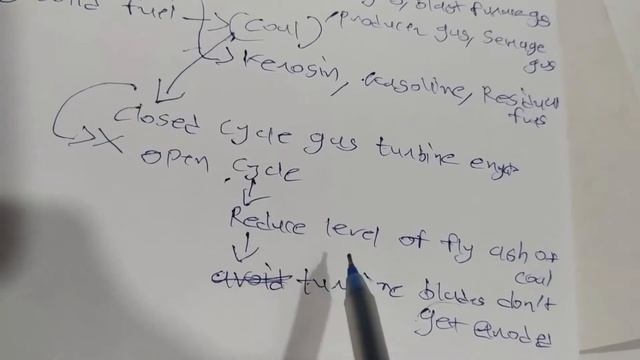 fuel
blast furnace gas
(coal)
Producer gas, Sewage gas
Kerosin, Gasoline, Residual fuel
Closed cycle gas turbine
X open cycle
Reduce level of fly ash of coal
turbine blades don't get